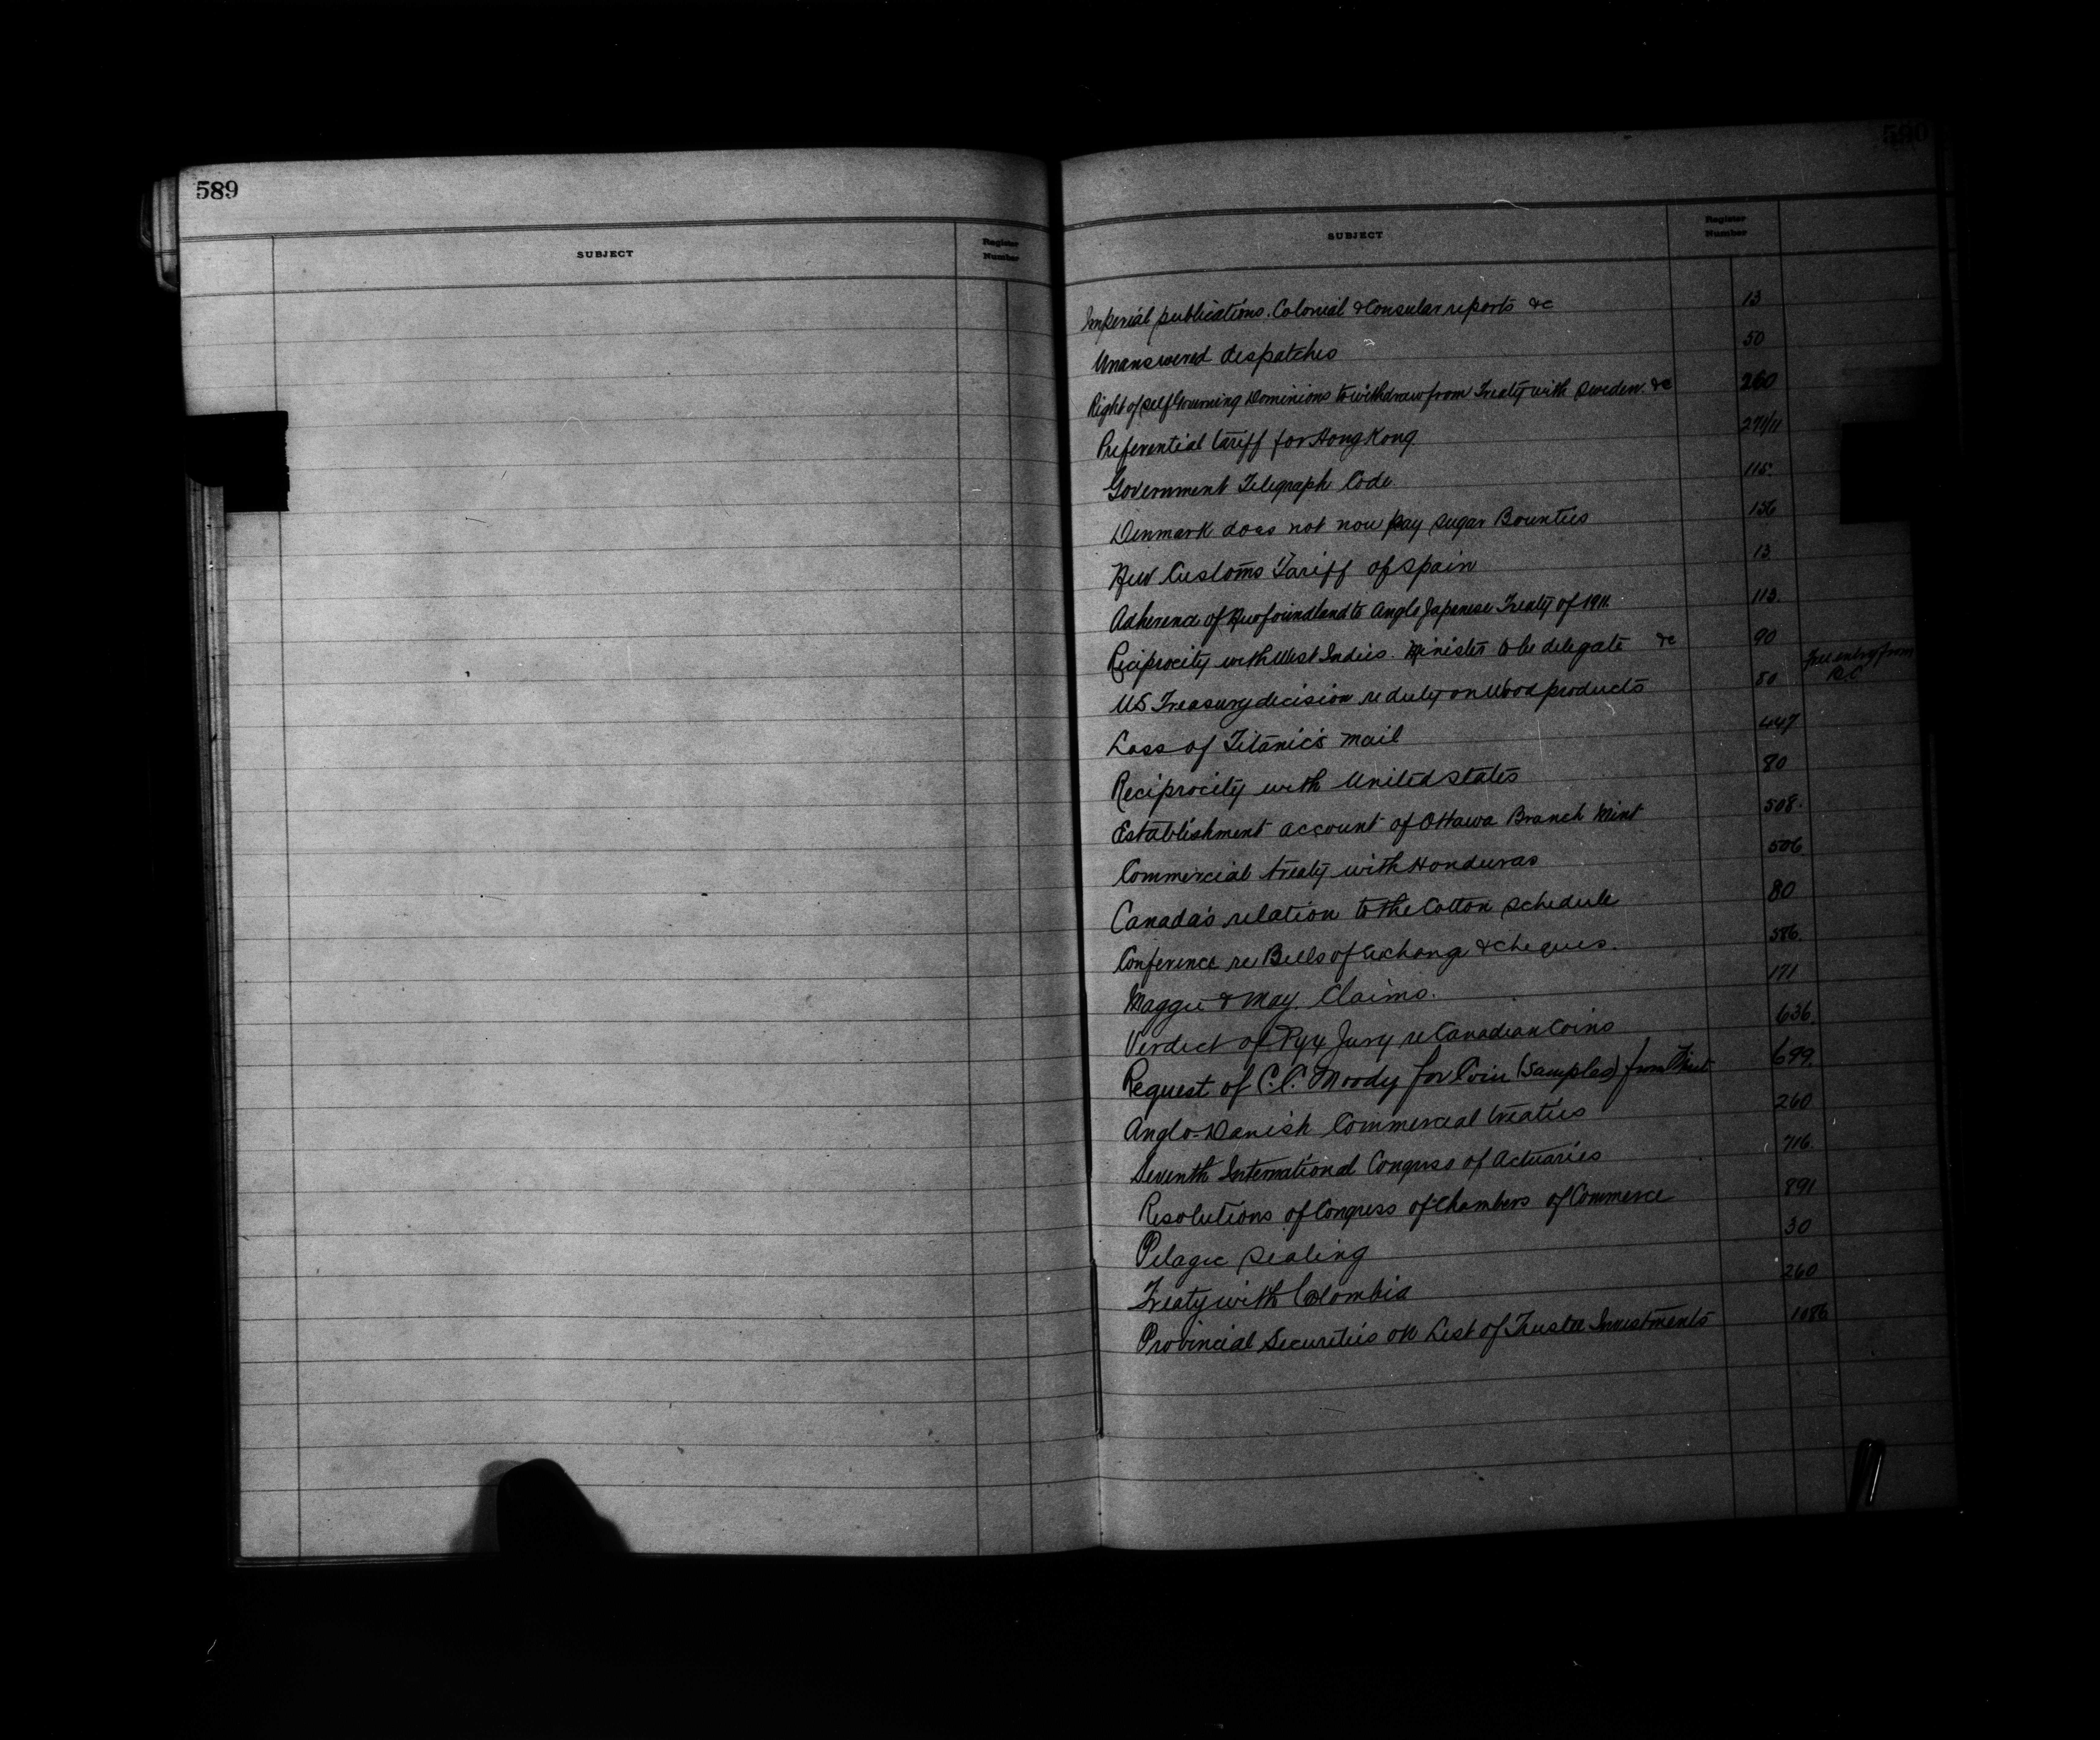 589
SUBJECT Register Number
590
SUBJECT Register Number
Imperial publications. Colonial & Consular reports &c 13
Unanswered despatches 50
Right of Self Governing Dominions to withdraw from Treaty with Sweden. &c 260
Preferential tariff for Hong Kong 271/11
Government Telegraph Code 115
Denmark does not now pay sugar Bounties 136
New Customs Tariff of Spain 13
Adherence of Newfoundland to Anglo Japanese Treaty of 1911. 113.
Reciprocity with West Indies. Minister to be delegate &c 90
US Treasury decision re duty on Wood products 50 Free entry from BC
Loss of Titanic's mail 447
Reciprocity with United States 80
Establishment account of Ottawa Branch Mint 508.
Commercial treaty with Honduras 506
Canada's relation to the Cotton schedule 80
Conference re Bills of Exchange & cheques. 586.
Maggie & May Claims. 171
Verdict of Pyx Jury re Canadian Coins 636.
Request of C.C. Moody for Coin (samples) from Mint 699.
Anglo-Danish Commercial treaties 260
Seventh International Congress of Actuaries 716.
Resolutions of Congress of Chambers of Commerce 891
Pelagic sealing 30
Treaty with Colombia 260
Provincial Securities on List of Trustee Investments 1086